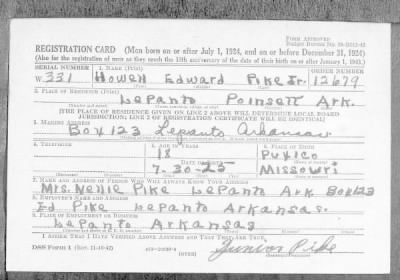 FORM APPROVED
REGISTRATION CARD (Men born on or after July 1, 1924, and on or before December 31, 1924)
(Also for the registration of men as they reach the 18th anniversary of the date of their birth on or after January 1, 1943.)
SERIAL NUMBER 1. NAME (Print) ORDER NUMBER
W. 331 Howell Edward Pike Jr. 12679
2. PLACE OF RESIDENCE (Print)
LePanto Poinsett Ark.
[THE PLACE OF RESIDENCE GIVEN ON LINE 2 ABOVE WILL DETERMINE LOCAL BOARD
JURISDICTION; LINE 2 OF REGISTRATION CERTIFICATE WILL BE IDENTICAL]
3. MAILING ADDRESS
Box 123 Lepanto Arkansas
4. TELEPHONE 5. AGE IN YEARS 6. PLACE OF BIRTH
18 Puxico
DATE OF BIRTH
7-30-25 Missouri
7. NAME AND ADDRESS OF PERSON WHO WILL ALWAYS KNOW YOUR ADDRESS
Mrs. Nellie Pike LePanto Ark Box 123
8. EMPLOYER'S NAME AND ADDRESS
Ed Pike LePanto Arkansas.
9. PLACE OF EMPLOYMENT OR BUSINESS
LePanto Arkansas
I AFFIRM THAT I HAVE VERIFIED ABOVE ANSWERS AND THAT THEY ARE TRUE.
DSS Form 1 (OVER) Junior Pike